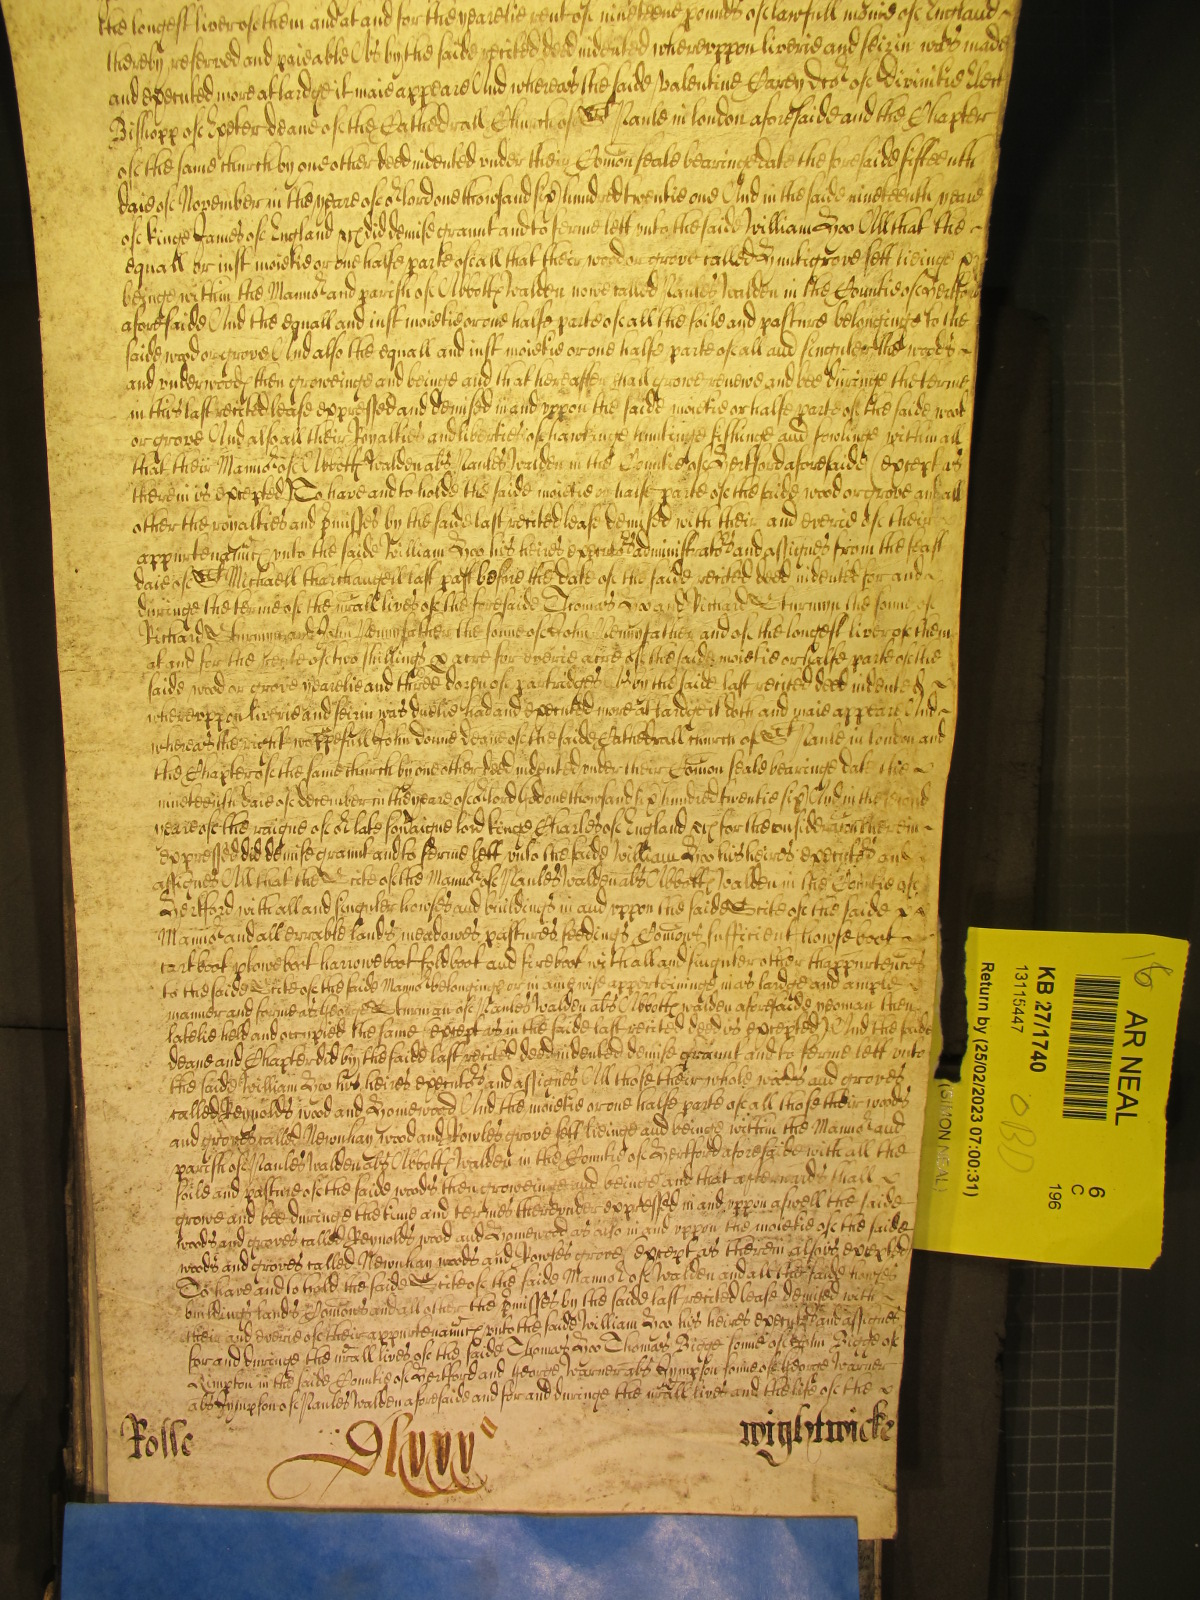 the longest liver of them and at and for the yearelie rent of nineteene pounds of lawfull monie of England
thereby reserved and paieable As by the saide recited deed indented whereuppon liverie and seizin was made
and executed more at lardge it maie appeare And whereas the saide Valentine Carey Dcor of Divinitie Elect
Bishopp of Exeter deane of the Cathedrall Church of St Paule in london aforesaide and the Chapter
of the same church by one other deed indented under their Comon seale bearinge date the foresaide fifteenth
daie of November in the yeare of or lord one thousand six hundred twentie one And in the saide nineteenth yeare
of kinge James of England &c did demise graunt and to ferme lett unto the saide William Hoo All that the
equall or iust moietie or one halfe parte of all that their wood or grove called sett lieinge &
beinge within the Mannor and parish of Abbotts Walden nowe called Paules Walden in the Countie of Hertford
aforesaide And the equall and iust moietie or one halfe parte of all the soile and pasture belonginge to the
saide wood or grove And also the equall and iust moietie or one halfe parte of all and singuler the woods
and underwoods then groweinge and beinge and that hereafter shall growe renewe and bee duringe the terme
in this last recited lease expressed and demised in and uppon the saide moietie or halfe parte of the saide wood
or grove And also all their Royalties and liberties of hawkinge huntinge fishinge and fowlinge within all
that their Mannor of Abbotts Walden als Paules Walden in the Countie of Hertford aforesaide (except as
therein is excepted) To have and to holde the saide moietie or halfe parte of the saide wood or grove and all
other the royalties and pmisses by the saide last recited lease demised with their and everie of their
appurtenauncs unto the saide William Hoo his heires executors administrators and assignes from the feast
daie of St Michaell tharchangell last past before the date of the saide recited deed indented for and
duringe the terme of the nrall lives of the foresaide Thomas Hoo and Richard Sturmyn the sonne of
Richard Sturmyn and John Pennyfather the sonne of John Pennyfather and of the longest liver of them
at and for the rente of two shillings p acre for everie acre of the saide moietie or halfe parte of the
saide wood or grove yearelie and three dozen of partridges As by the saide last recited deed indented
whereuppon liverie and seizin was duelie had and executed more at lardge it doth and maie appeare And
whereas the right worppefull John Donne deane of the saide Cathedrall church of St Paule in london and
the Chapter of the same church by one other deed indented under their Comon seale bearinge date the
nineteenth daie of december in the yeare of or lord god one thowsand six hundred twentie six And in the second
yeare of the raigne of or late soveraigne lord kinge Charles of England &c for the consideracon therein
expressed did demise graunt and to ferme lett unto the saide William Hoo his heires executors and
assignes All that the Scite of the Mannor of Paules Walden als Abbotts Walden in the Countie of
Hertford with all and singuler howses and buildings in and uppon the saide Scite of the saide
Mannor and all errable lands meadowes pastures feedings Comons sufficient howseboot
cartboot ploweboot harroweboot foldboot and fireboot with all and singuler other thappurtences
to the saide Scite of the saide Mannor belonginge or in anie wise apperteininge in as lardge and ample
manner and forme as George Sturman of Paules Walden als Abbotts Walden aforesaide yeoman then
latelie held and occupied the same (except as in the saide last recited deed is excepted) And the saide
deane and Chapter did by the saide last recited deed indented demise graunt and to ferme lett unto
the saide William Hoo his heires executors and assignes All those their whole woods and groves
called Reynolds wood and Homewood And the moietie or one halfe parte of all those their woods
and groves called Newnhay wood and Powles grove sett lieinge and beinge within the Mannor and
parish of Paules Walden als Abbotts Walden in the Countie of Hertford aforesaide with all the
soile and pasture of the saide woods then groweinge and beinge and that afterwards shall
growe and bee duringe the time and termes thereunder expressed in and uppon aswell the saide
woods and groves called Reynolds wood and Homewood as also in and uppon the moietie of the saide
woods and groves called Newnhay woods and Powles grove (except as therein also is excepted)
To have and to hold the saide Scite of the saide Mannor of Walden and all the saide howses
buildings lands Comons and all other the pmisses by the saide last recited lease demised with
their and everie of their appurtenauncs unto the saide William Hoo his heires executors and assignes
for and duringe the nrall lives of the saide Thomas Hoo Thomas Bigge sonne of John Bigge of
Kimpton in the saide Countie of Hertford and George Warner als Sympson sonne of George Warner
als Sympson of Paules Walden aforesaide and for and duringe the nrall lives and the life of the
Rolle wightwicke
16
AR NEAL
6
C
196
KB 27/1740
13115447
OBD
Return by (25/02/2023 07:00:31)
(SIMON NEAL)